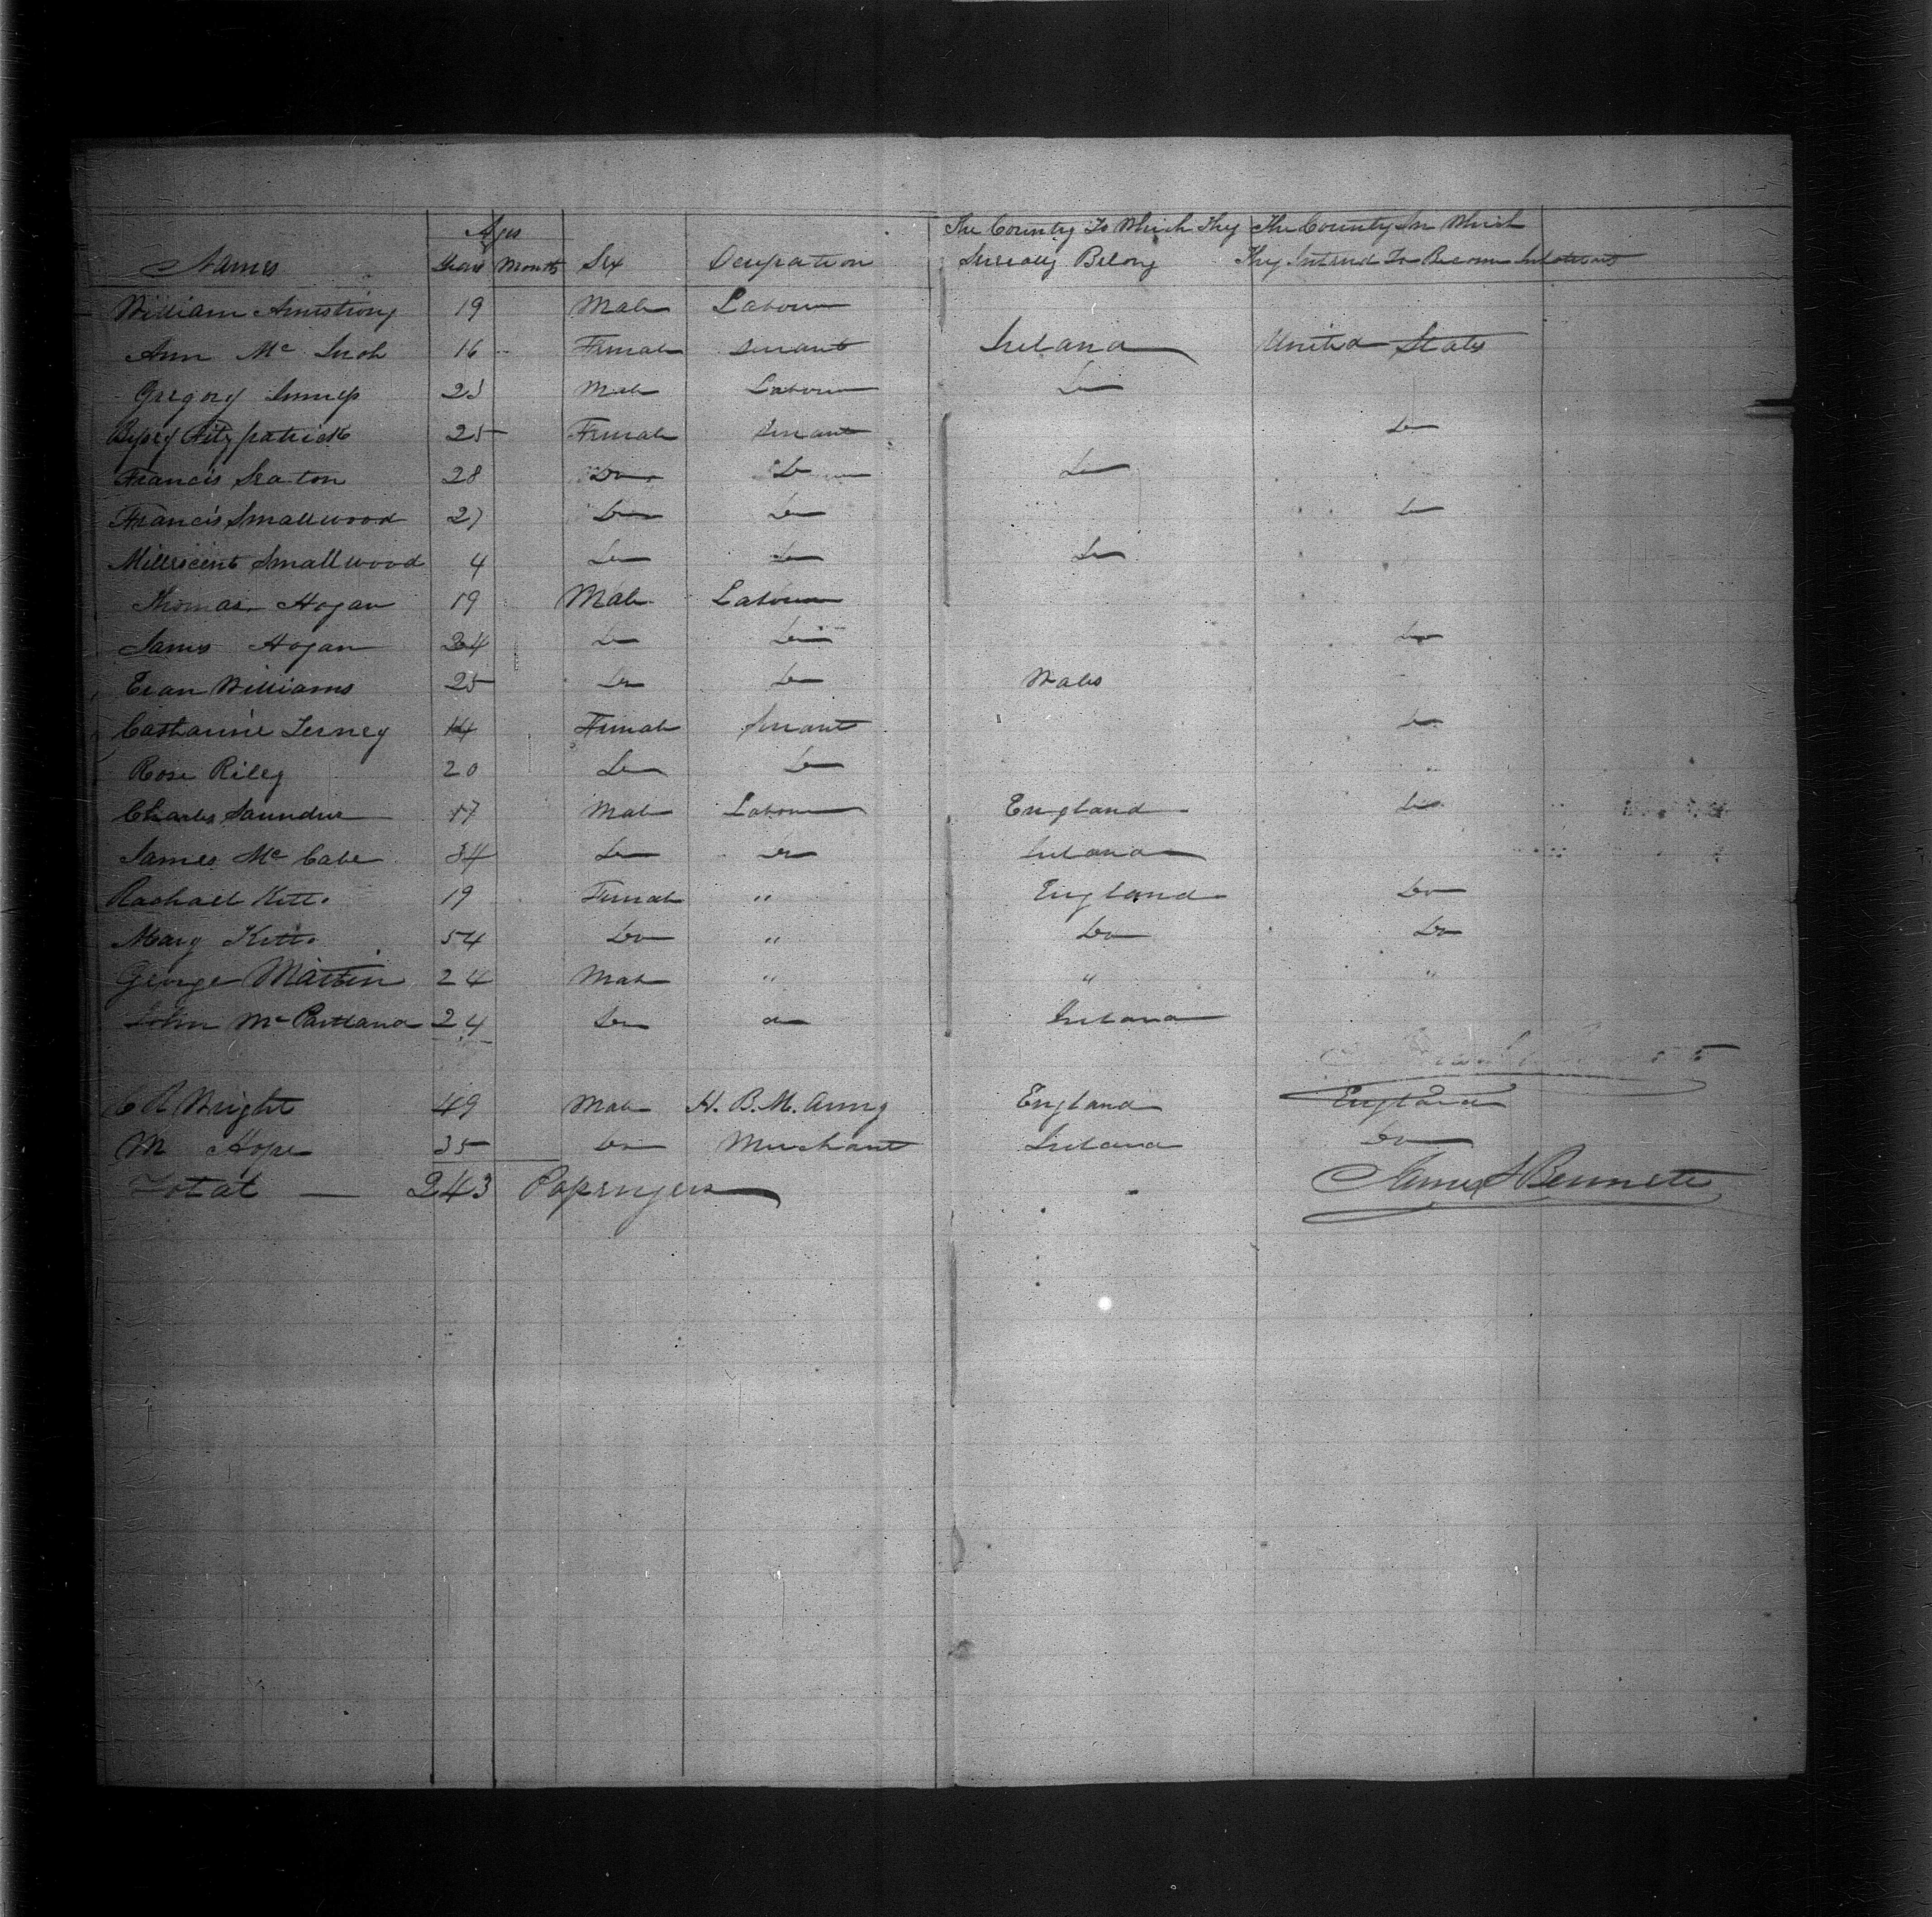 Ages The Country To Which They The Country In Which
Names Years Months Sex Ocupation Serealy Belong They Intend To Become Inhabitants
William Armstrong 19 Male Labour
Ann Mc 16 Female Servant Ireland United States
Gregory 23 Male Labour Do
Bipsey Fitzpatrick 25 Female Servant Do
Francis Seaton 28 Do Do Do
Francis Smallwood 27 Do Do Do
Millescent Smallwood 4 Do Do Do
Thomas Hogan 19 Male Labour
James Hogan 24 Do Do Do
Evan Williams 25 Do Do Wales
Catharine Terney 14 Female Servant Do
Rose Riley 20 Do Do
Charles Saunders 17 Male Labour England Do
James Mc Cabe 34 Do Do Ireland
Rachael Kitt. 19 Female " England Do
Mary Kitt. 54 Do " Do Do
George Martin 24 Male " " "
John Mc Partland 24 Do Do Ireland
C R Wright 49 Male H. B. M. Army England England
M Hope 35 Do Merchant Ireland Do
Total — 243 Pasengers James A Bennett